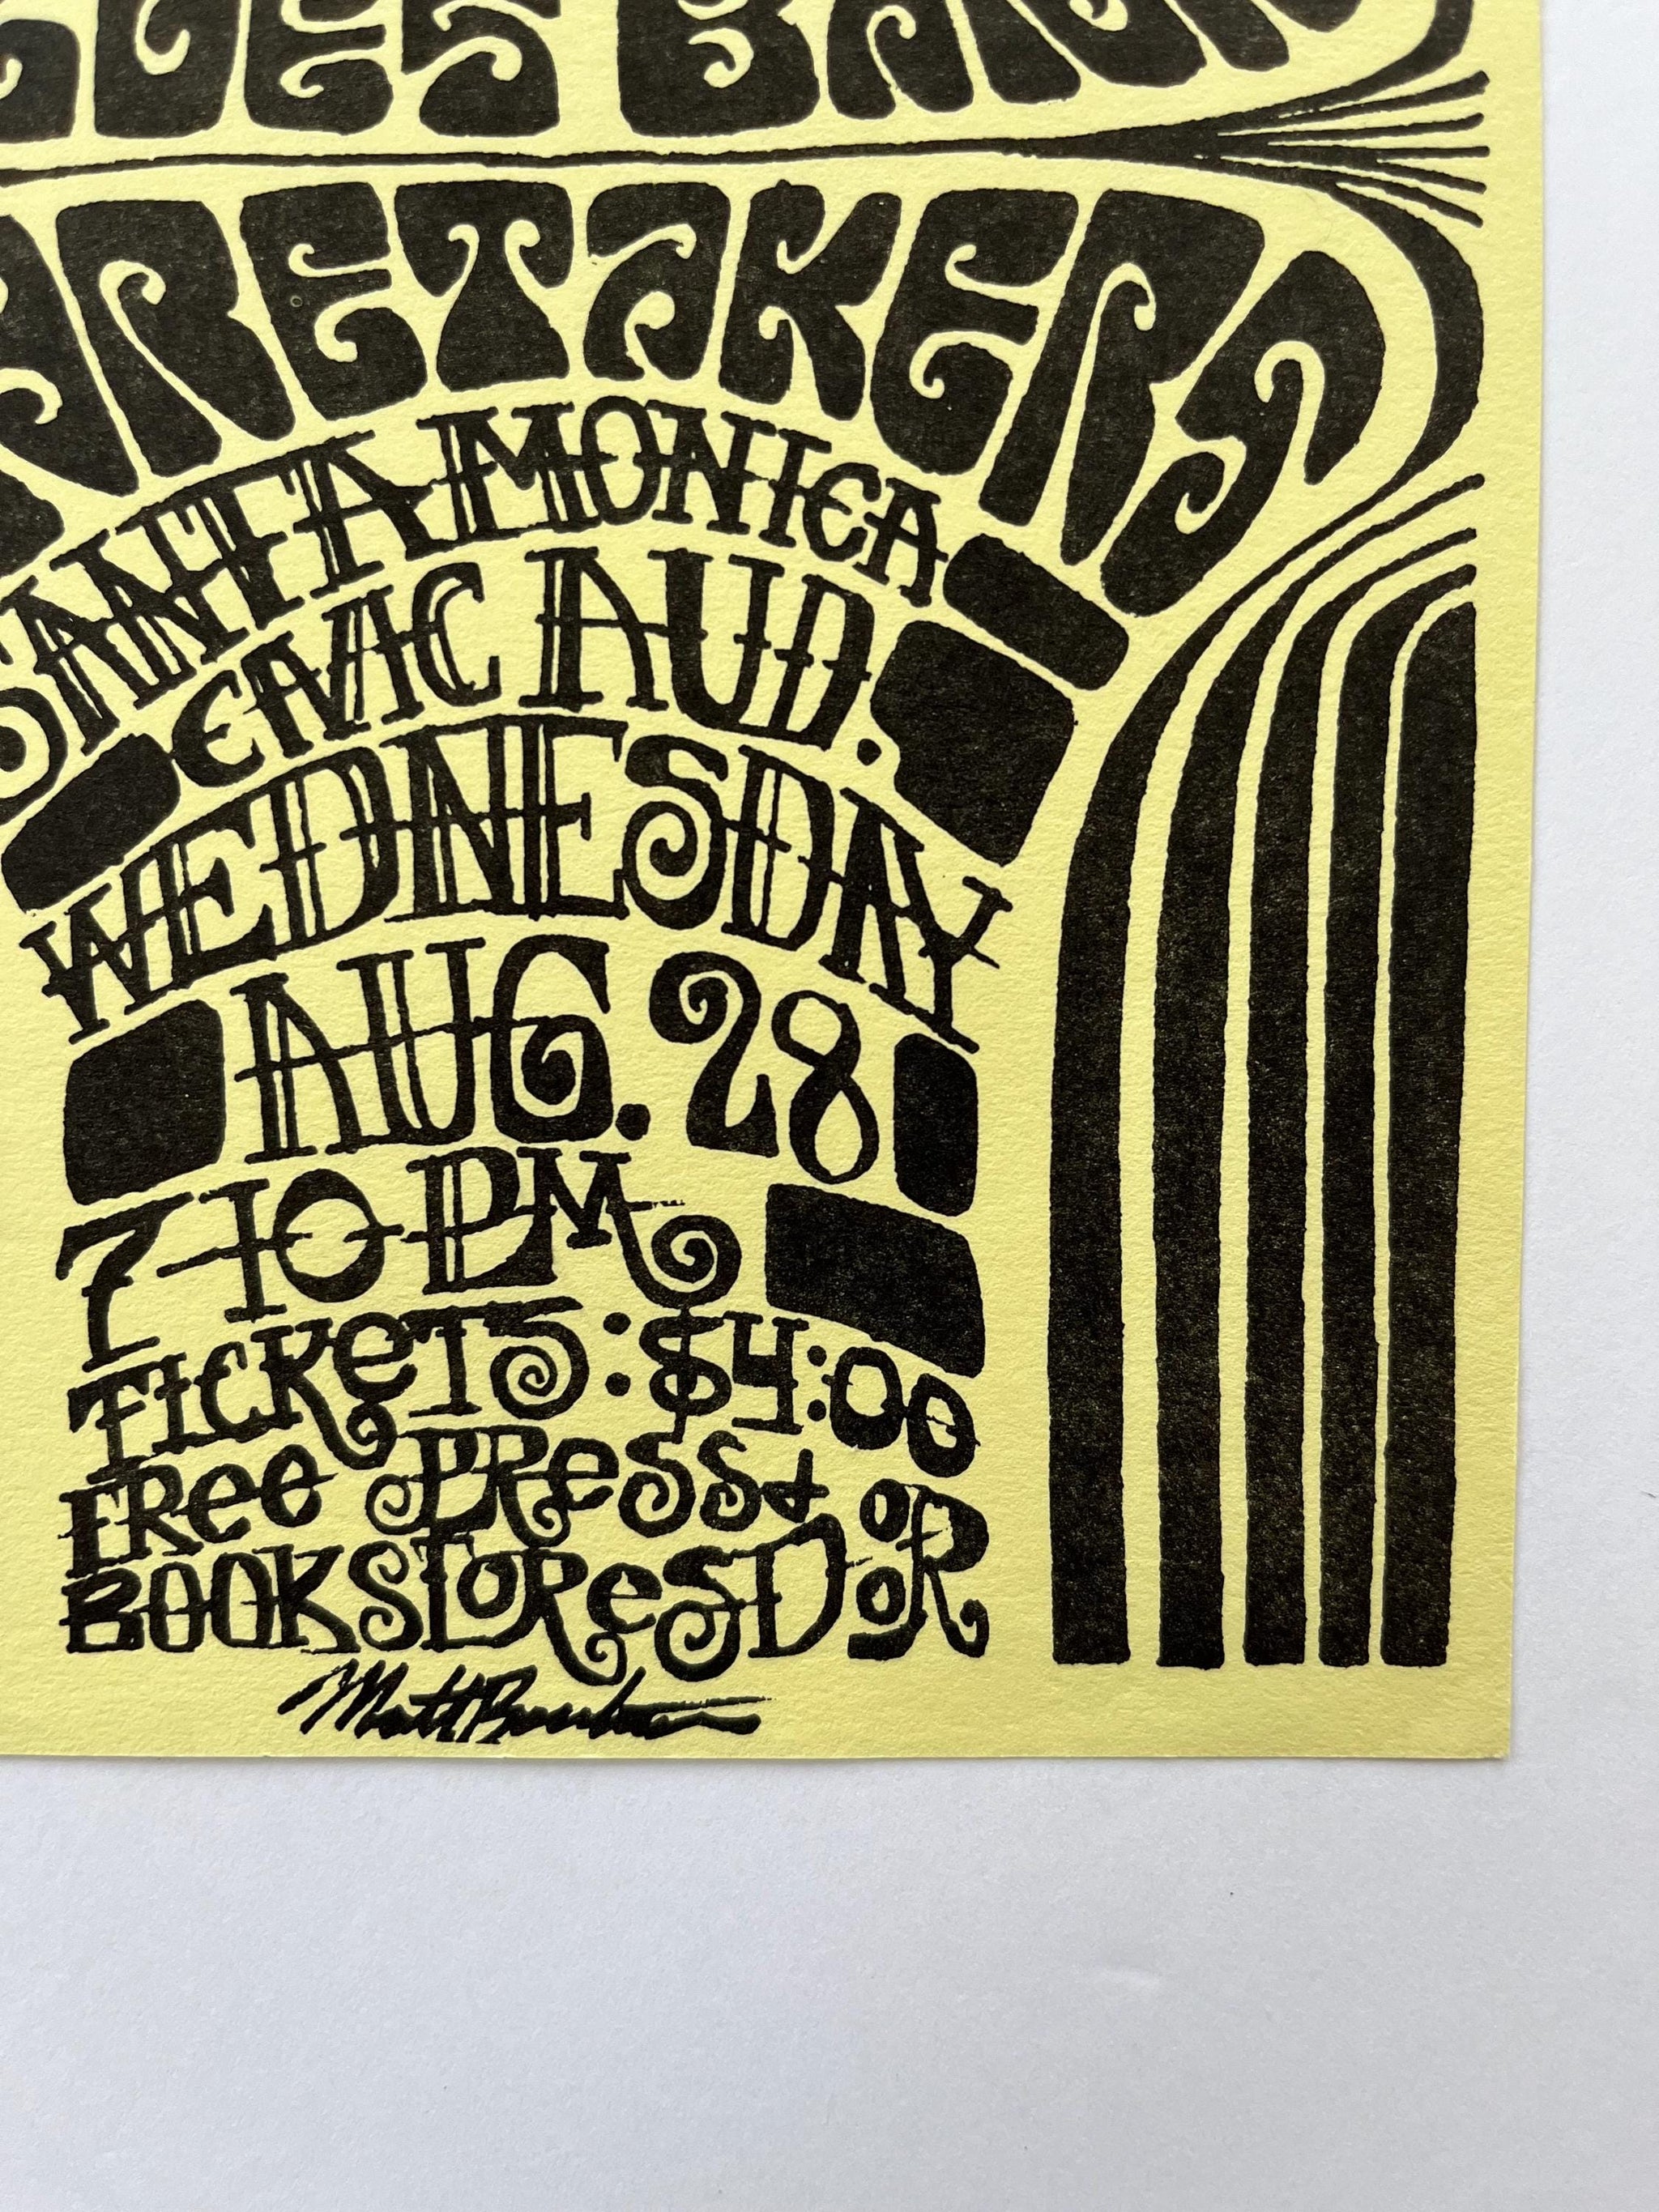 LUES BAND
ARETAKERS
SANTA MONICA
CIVIC AUD.
WEDNESDAY
AUG. 28
7-10 PM
TICKETS: $4:00
FREE PRESS +
BOOKSTORES DOOR
Matt